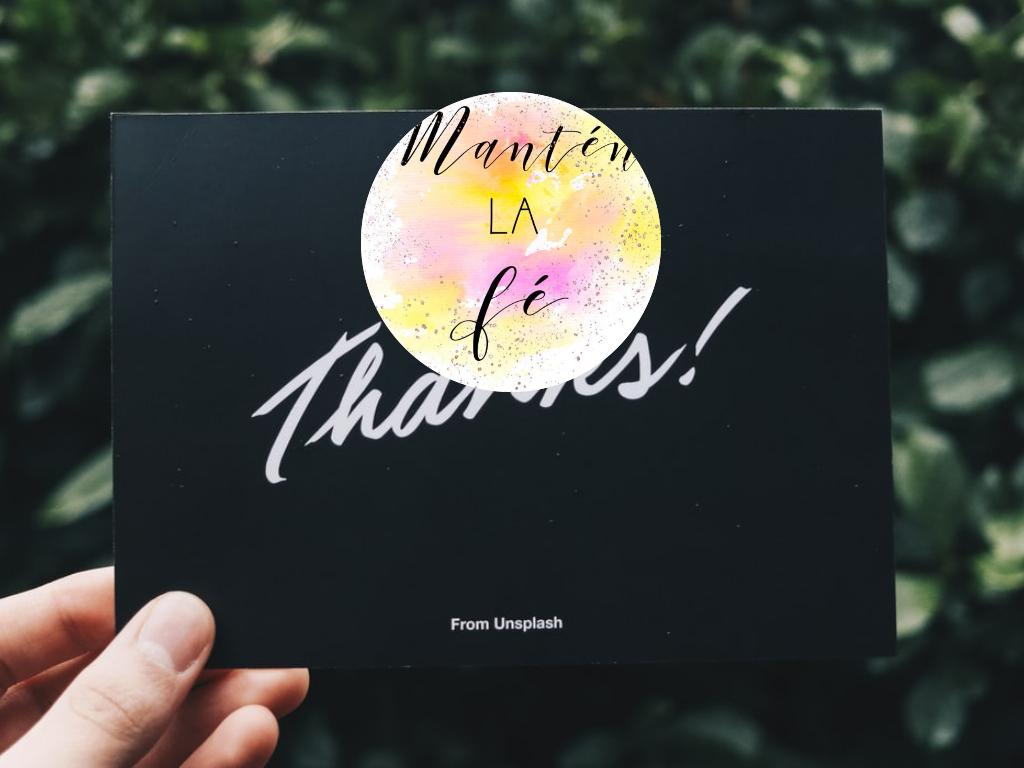 Mantén
LA
fé
Thanks!
From Unsplash